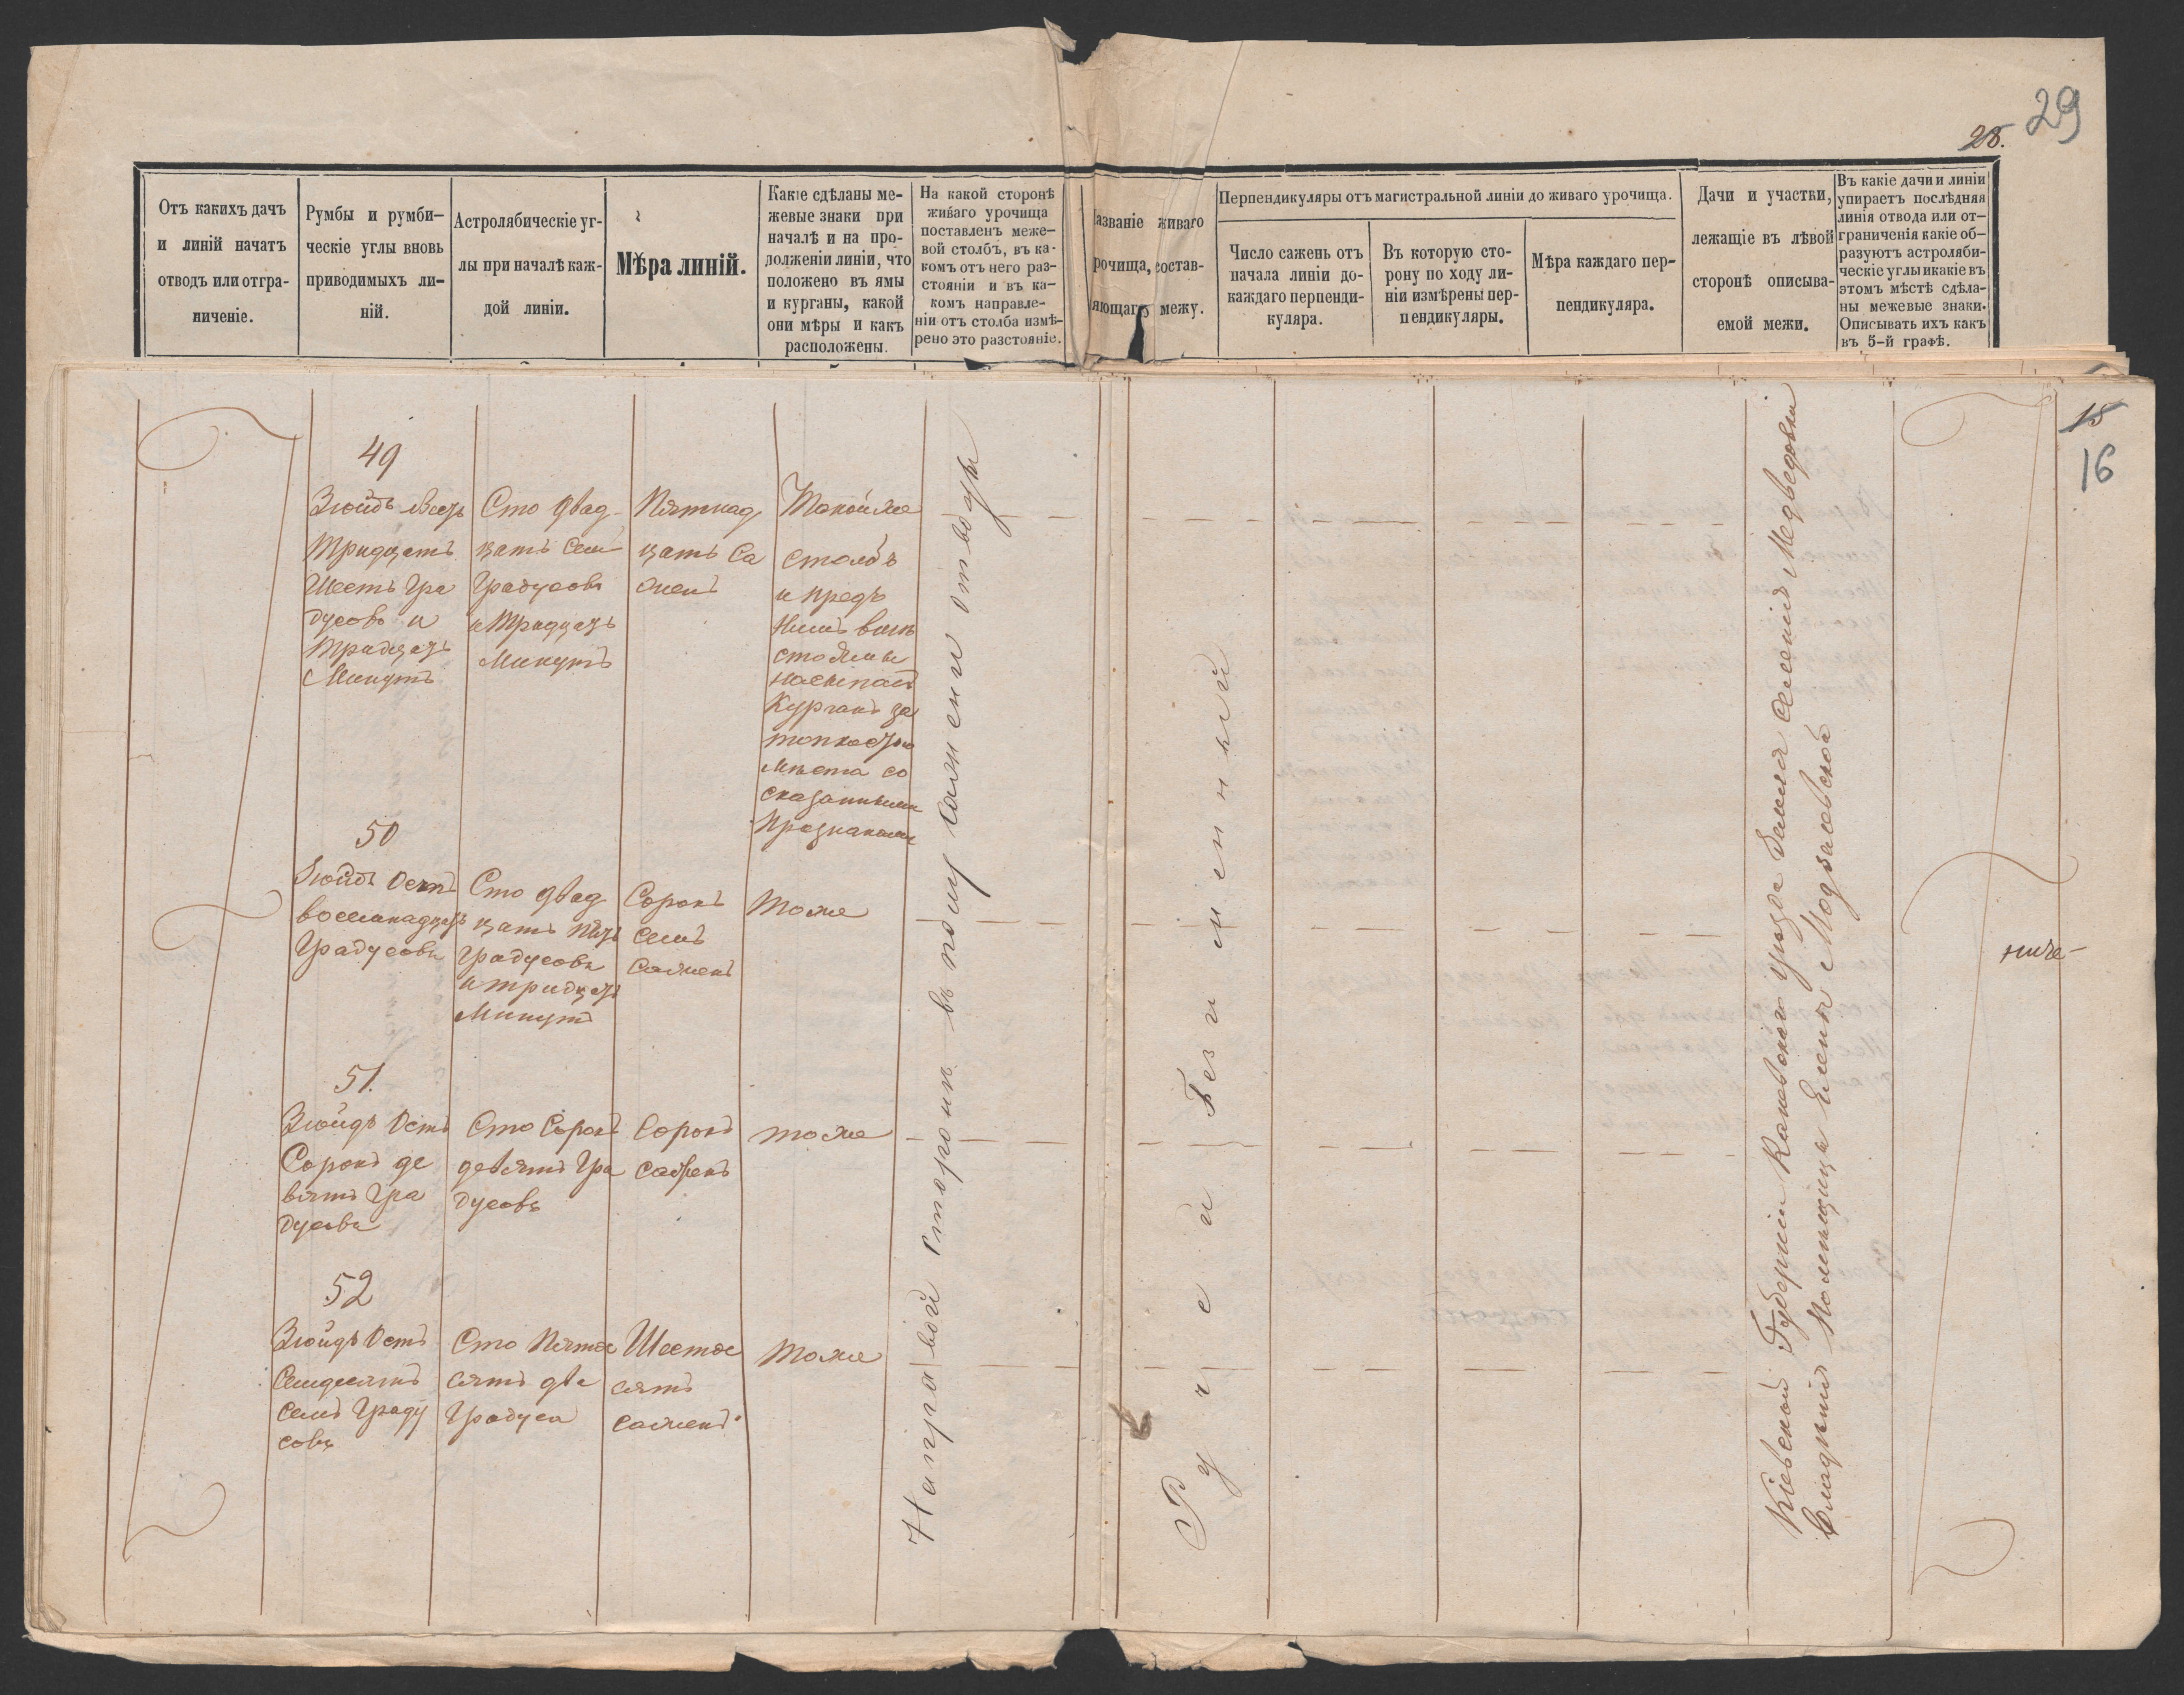 29
28.
Отъ какихъ дачъ
и линій начатъ
отводъ или отгра-
ниченіе.
Румбы и румби-
ческіе углы вновь
приводимыхъ ли-
ній.
Астролябическіе уг-
лы при началѣ каж-
дой линіи.
Мѣра линій.
Какіе сдѣланы ме-
жевые знаки при
началѣ и на про-
долженіи линіи, что
положено въ ямы
и курганы, какой
они мѣры и какъ
расположены.
На какой сторонѣ
живаго урочища
поставленъ меже-
вой столбъ, въ ка-
комъ отъ него раз-
стояніи и въ ка-
комъ направле-
ніи отъ столба измѣ-
рено это разстояніе.
азваніе живаго
рочища, состав-
яющаго межу.
Перпендикуляры отъ магистральной линіи до живаго урочища.
Число сажень отъ
начала линіи до-
каждаго перпенди-
куляра.
Въ которую сто-
рону по ходу ли-
ніи измѣрены пер-
пендикуляры.
Мѣра каждаго пер-
пендикуляра.
Дачи и участки,
лежащіе въ лѣвой
сторонѣ описыва-
емой межи.
Въ какіе дачи и линіи
упираетъ послѣдняя
линія отвода или от-
граниченія какіе об-
разуютъ астроляби-
ческіе углы и какіе въ
этомъ мѣстѣ сдѣла-
ны межевые знаки.
Описывать ихъ какъ
въ 5-й графѣ.
15
16
49
Зюйдъ Вестъ
Тридцать
Шесть Гра
дусовъ и
Тридцать
Минутъ
Сто двад-
цать Семь
Градусовъ
и Тридцать
Минутъ
Пятнад
цать Са
жень
Такой же
столбъ
и предъ
Нимъ вмѣ
сто Ямы
насыпанъ
Курганъ за
топкостью
мѣста со
сказанными
Признаками
50
Зюйдъ Остъ
восемнадцать
Градусовъ
Сто двад
цать пять
Градусовъ
и тридцать
Минутъ
Сорокъ
Семь
Сажень
Тоже
51.
Зюйдъ Остъ
Сорокъ де
вять Гра
дусовъ
Сто Сорокъ
девять Гра
дусовъ
Сорокъ
Сажень
тоже
52
Зюйдъ Остъ
Семдесятъ
Семь Граду
совъ
Сто Пятде
сятъ два
Градуса
Шестде
сятъ
сажень
Тоже
На правой сторонѣ въ полу сажени отъ воды
Ручей Безъименный
Кіевской Губерніи Каневскаго уѣзда дачи селеній Медведовки
помѣщица Елены Модзалевской
ниче-